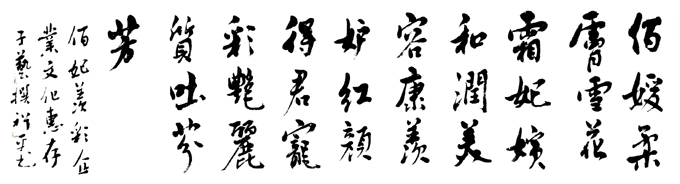 佰媛柔
膚雪花
霜妃嬪
和潤美
容康羨
妒紅顏
得君寵
彩艷麗
質吐芬
芳
佰妃羨彩企
業文化惠存
子藝撰祥